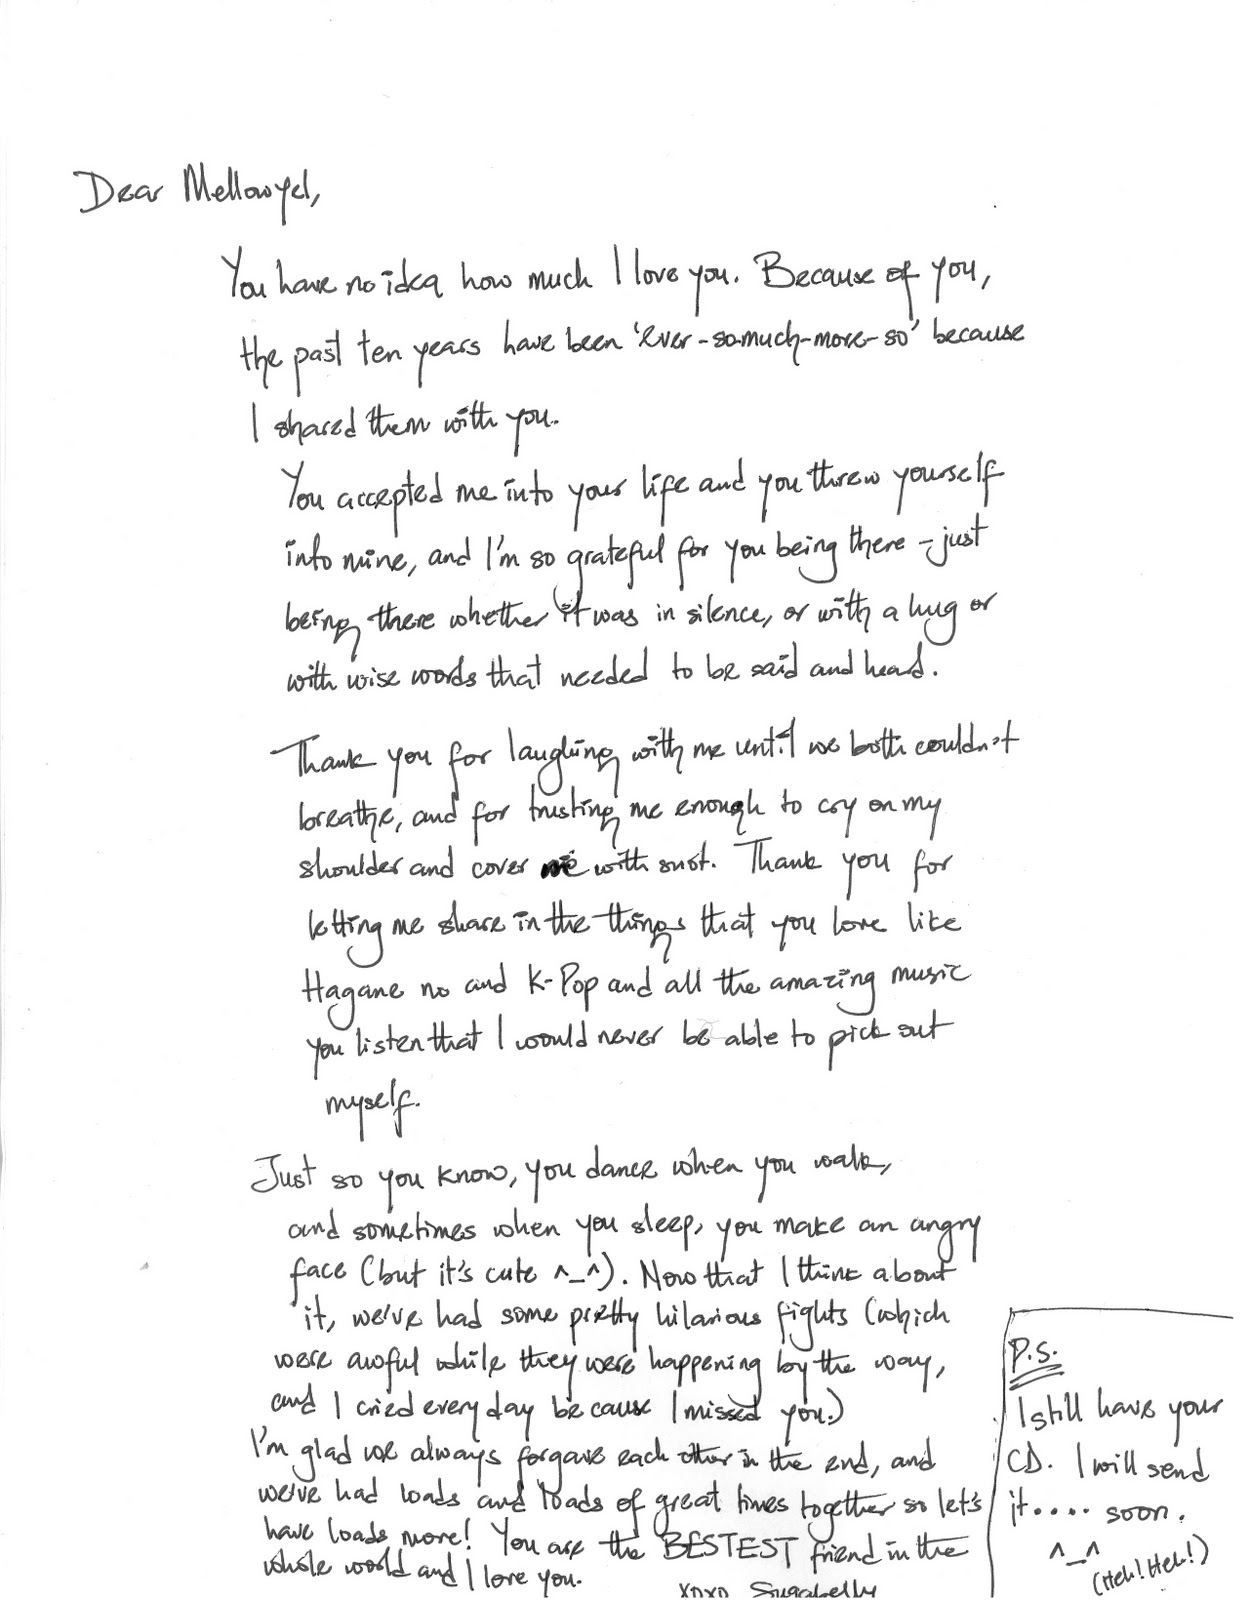 Dear Mellowyel,
You have no idea how much I love you. Because of you,
the past ten years have been 'ever-so-much-more-so' because
I shared them with you.
You accepted me into your life and you threw yourself
into mine, and I'm so grateful for you being there - just
being there whether it was in silence, or with a hug or
with wise words that needed to be said and heard.
Thank you for laughing with me until we both couldn't
breathe, and for trusting me enough to cry on my
shoulder and cover me with snot. Thank you for
letting me share in the things that you love like
Hagane no and K-Pop and all the amazing music
you listen that I would never be able to pick out
myself.
Just so you know, you dance when you walk,
and sometimes when you sleep, you make an angry
face (but it's cute ^_^). Now that I think about
it, we've had some pretty hilarious fights (which
were awful while they were happening by the way,
and I cried every day because I missed you.)
I'm glad we always forgave each other in the end, and
we've had loads and loads of great times together so let's
have loads more! You are the BESTEST friend in the
whole world and I love you.
xoxo Sugabelly
P.S.
I still have your
CD. I will send
it.... soon.
^_^
(Heh! Heh!)